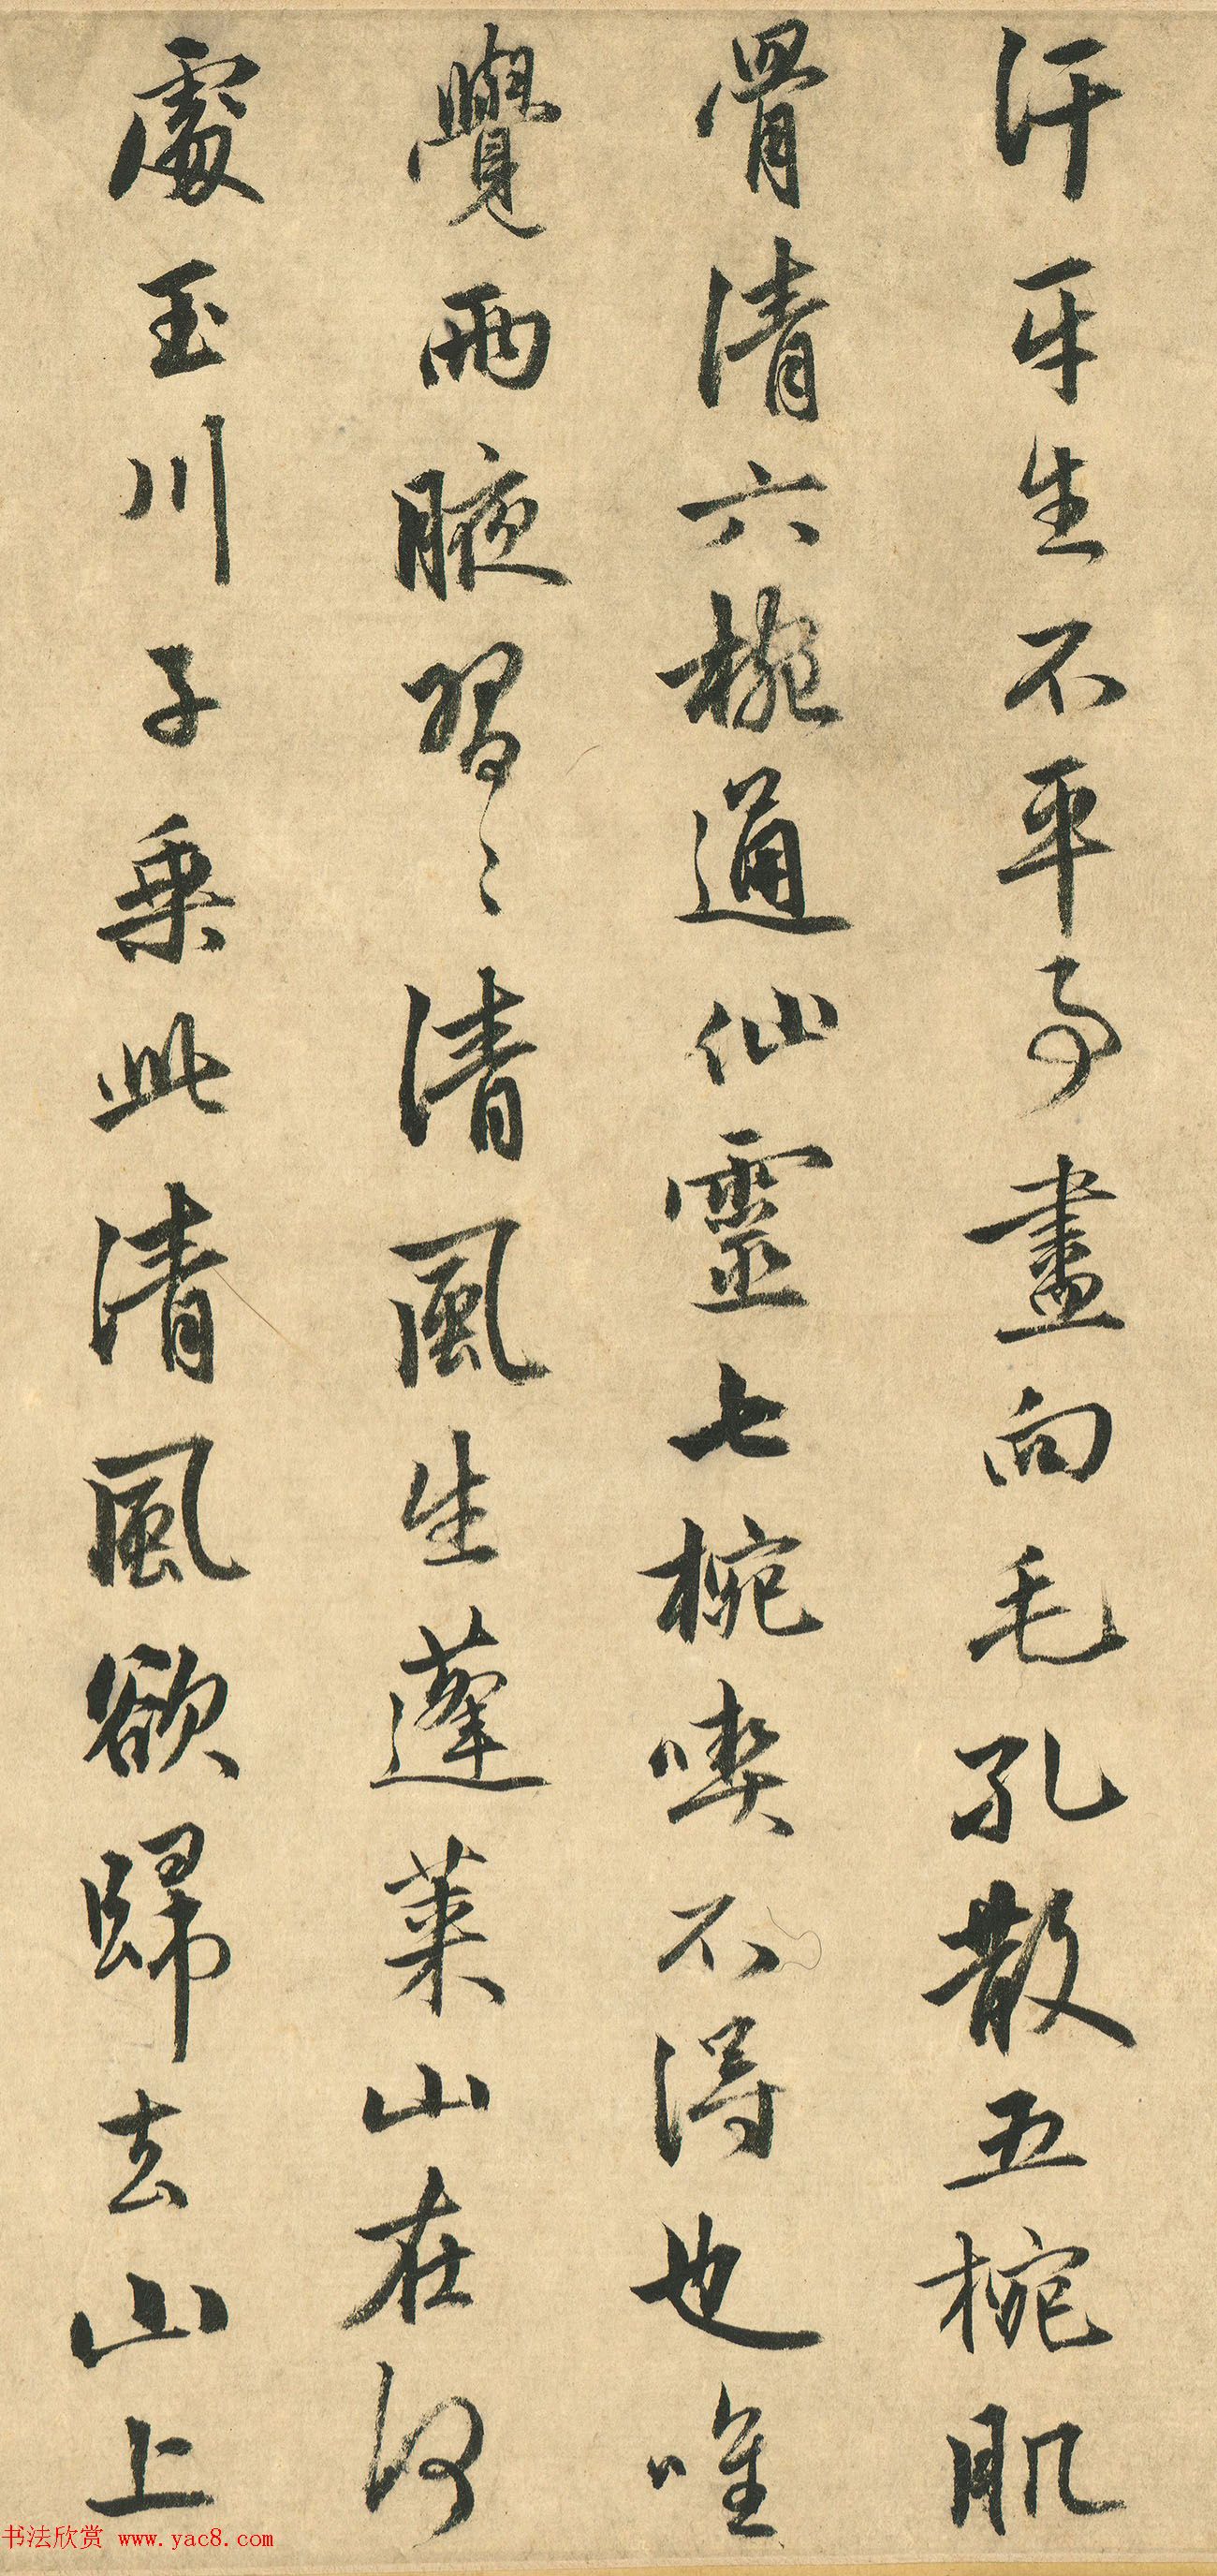 汗平生不平事盡向毛孔散五椀肌
骨清六椀通仙靈七椀喫不得也唯
覺兩腋習〻清風生蓬萊山在何
處玉川子乘此清風欲歸去山上
书法欣赏 www.yac8.com